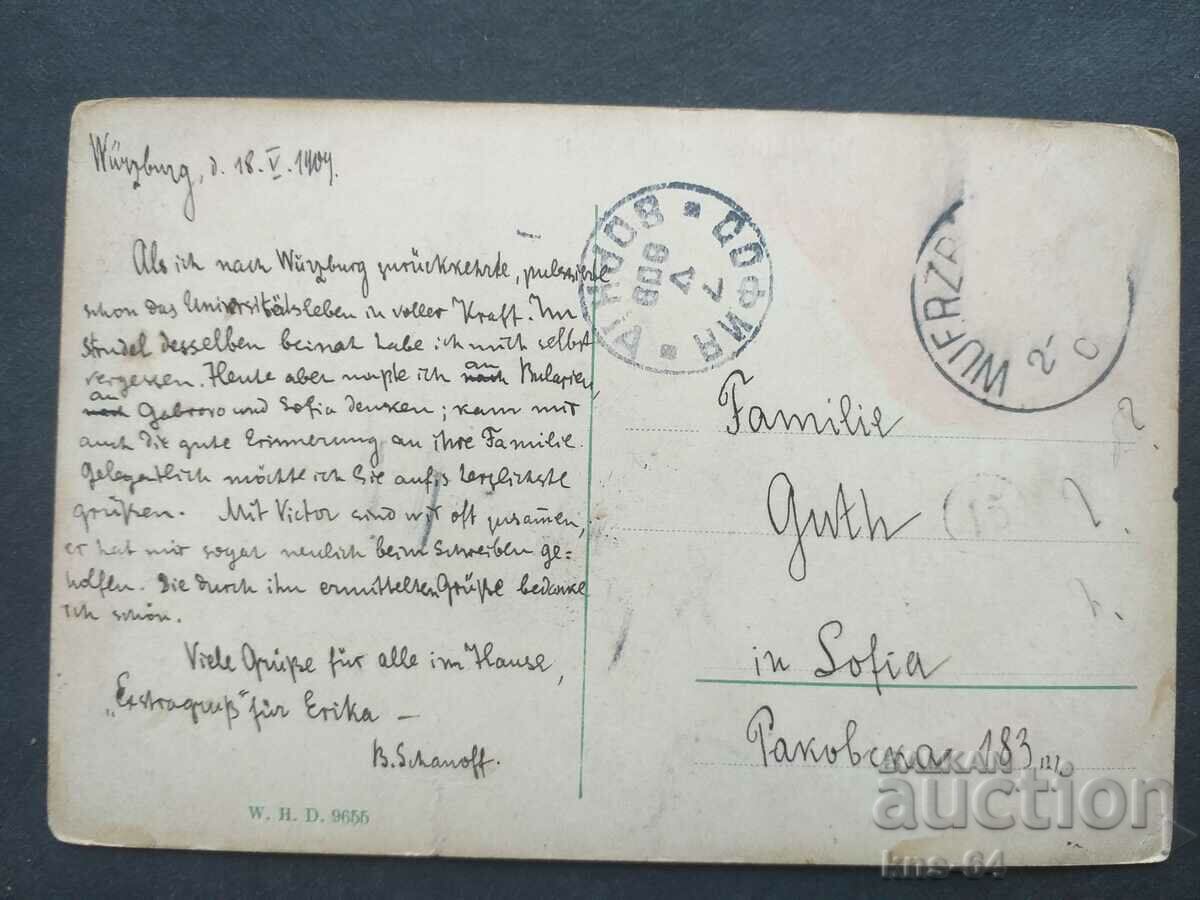 Würzburg, d. 18. V. 1909.
Als ich nach Würzburg zurückkehrte, pulsierte
schon das Universitätsleben in voller Kraft. Im
Strudel desselben beinah habe ich mich selbst
vergessen. Heute aber mußte ich an Bularien,
an Gabrovo und Sofia denken; kam mir
auch die gute Erinnerung an ihre Familie.
Gelegentlich möchte ich Sie auf's herzlichste
grüßen. Mit Victor sind wir oft zusamen,
er hat mir sogar neulich beim Schreiben ge=
holfen. Die durch ihn ermittelten Grüße bedanke
ich schön.
Viele Grüße für alle im Hause,
„Extragruß" für Erika —
B. Schanoff.
W. H. D. 9655
СОФИЯ
SOPHIA
WUERZB
2-
Familie
Guth
15
in Sofia
Раковска 183
BALKAN
auction
kns-64